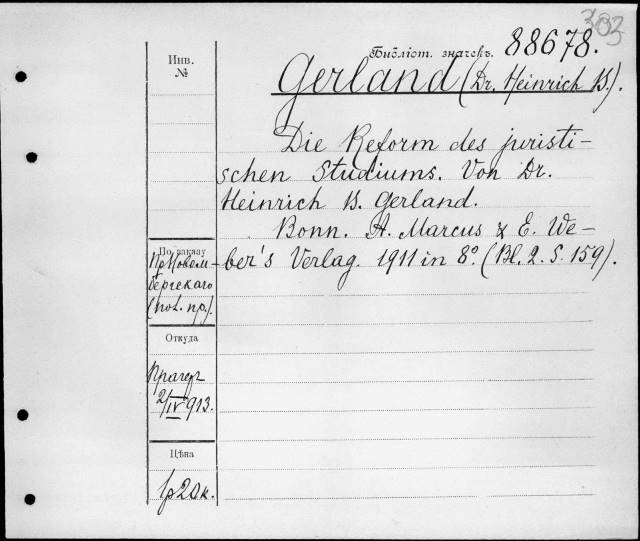 303
Библіот. значекъ. 88678.
Gerland (Dr. Heinrich B.).
Die Reform des juristi-
schen Studiums. Von Dr.
Heinrich B. Gerland.
Bonn. A. Marcus & E. We-
ber's Verlag. 1911 in 8º. (Bl. 2. S. 159).
Инв.
№
По заказу
(пол. пр.).
Откуда
Прагеръ
2/IV 913.
Цѣна
1р 20 к.